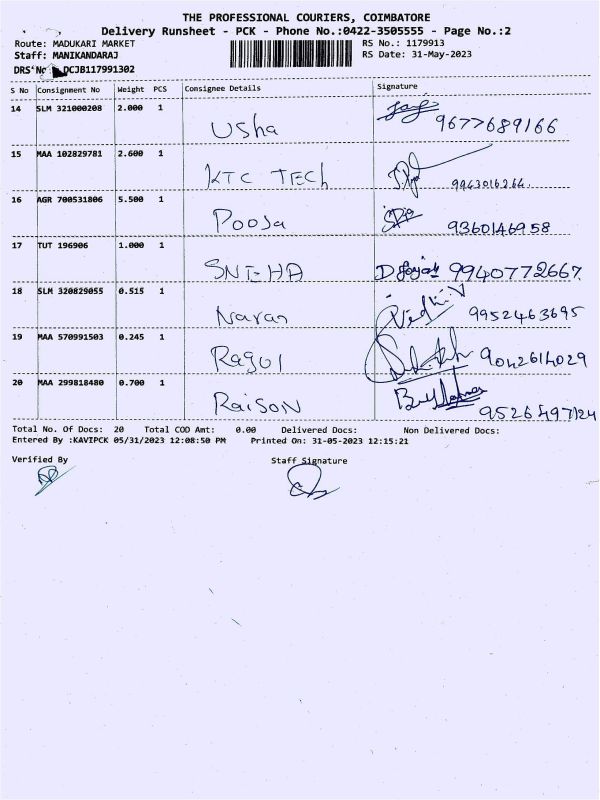 THE PROFESSIONAL COURIERS, COIMBATORE
Delivery Runsheet - PCK - Phone No.:0422-3505555 - Page No.:2
Route: MADUKARI MARKET RS No.: 1179913
Staff: MANIKANDARAJ RS Date: 31-May-2023
DRS No DCJB117991302
S No Consignment No Weight PCS Consignee Details Signature
14 SLM 321000208 2.000 1 Usha 9677689166
15 MAA 102829781 2.600 1 KTC TECh 9943016264
16 AGR 700531806 5.500 1 Pooja 9360146958
17 TUT 196906 1.000 1 SNEHA 9940772667
18 SLM 320829055 0.515 1 Naran 9952463695
19 MAA 570991503 0.245 1 Ragul 9042614029
20 MAA 299818480 0.700 1 RaiSON 9526497124
Total No. Of Docs: 20 Total COD Amt: 0.00 Delivered Docs: Non Delivered Docs:
Entered By :KAVIPCK 05/31/2023 12:08:50 PM Printed On: 31-05-2023 12:15:21
Verified By Staff Signature